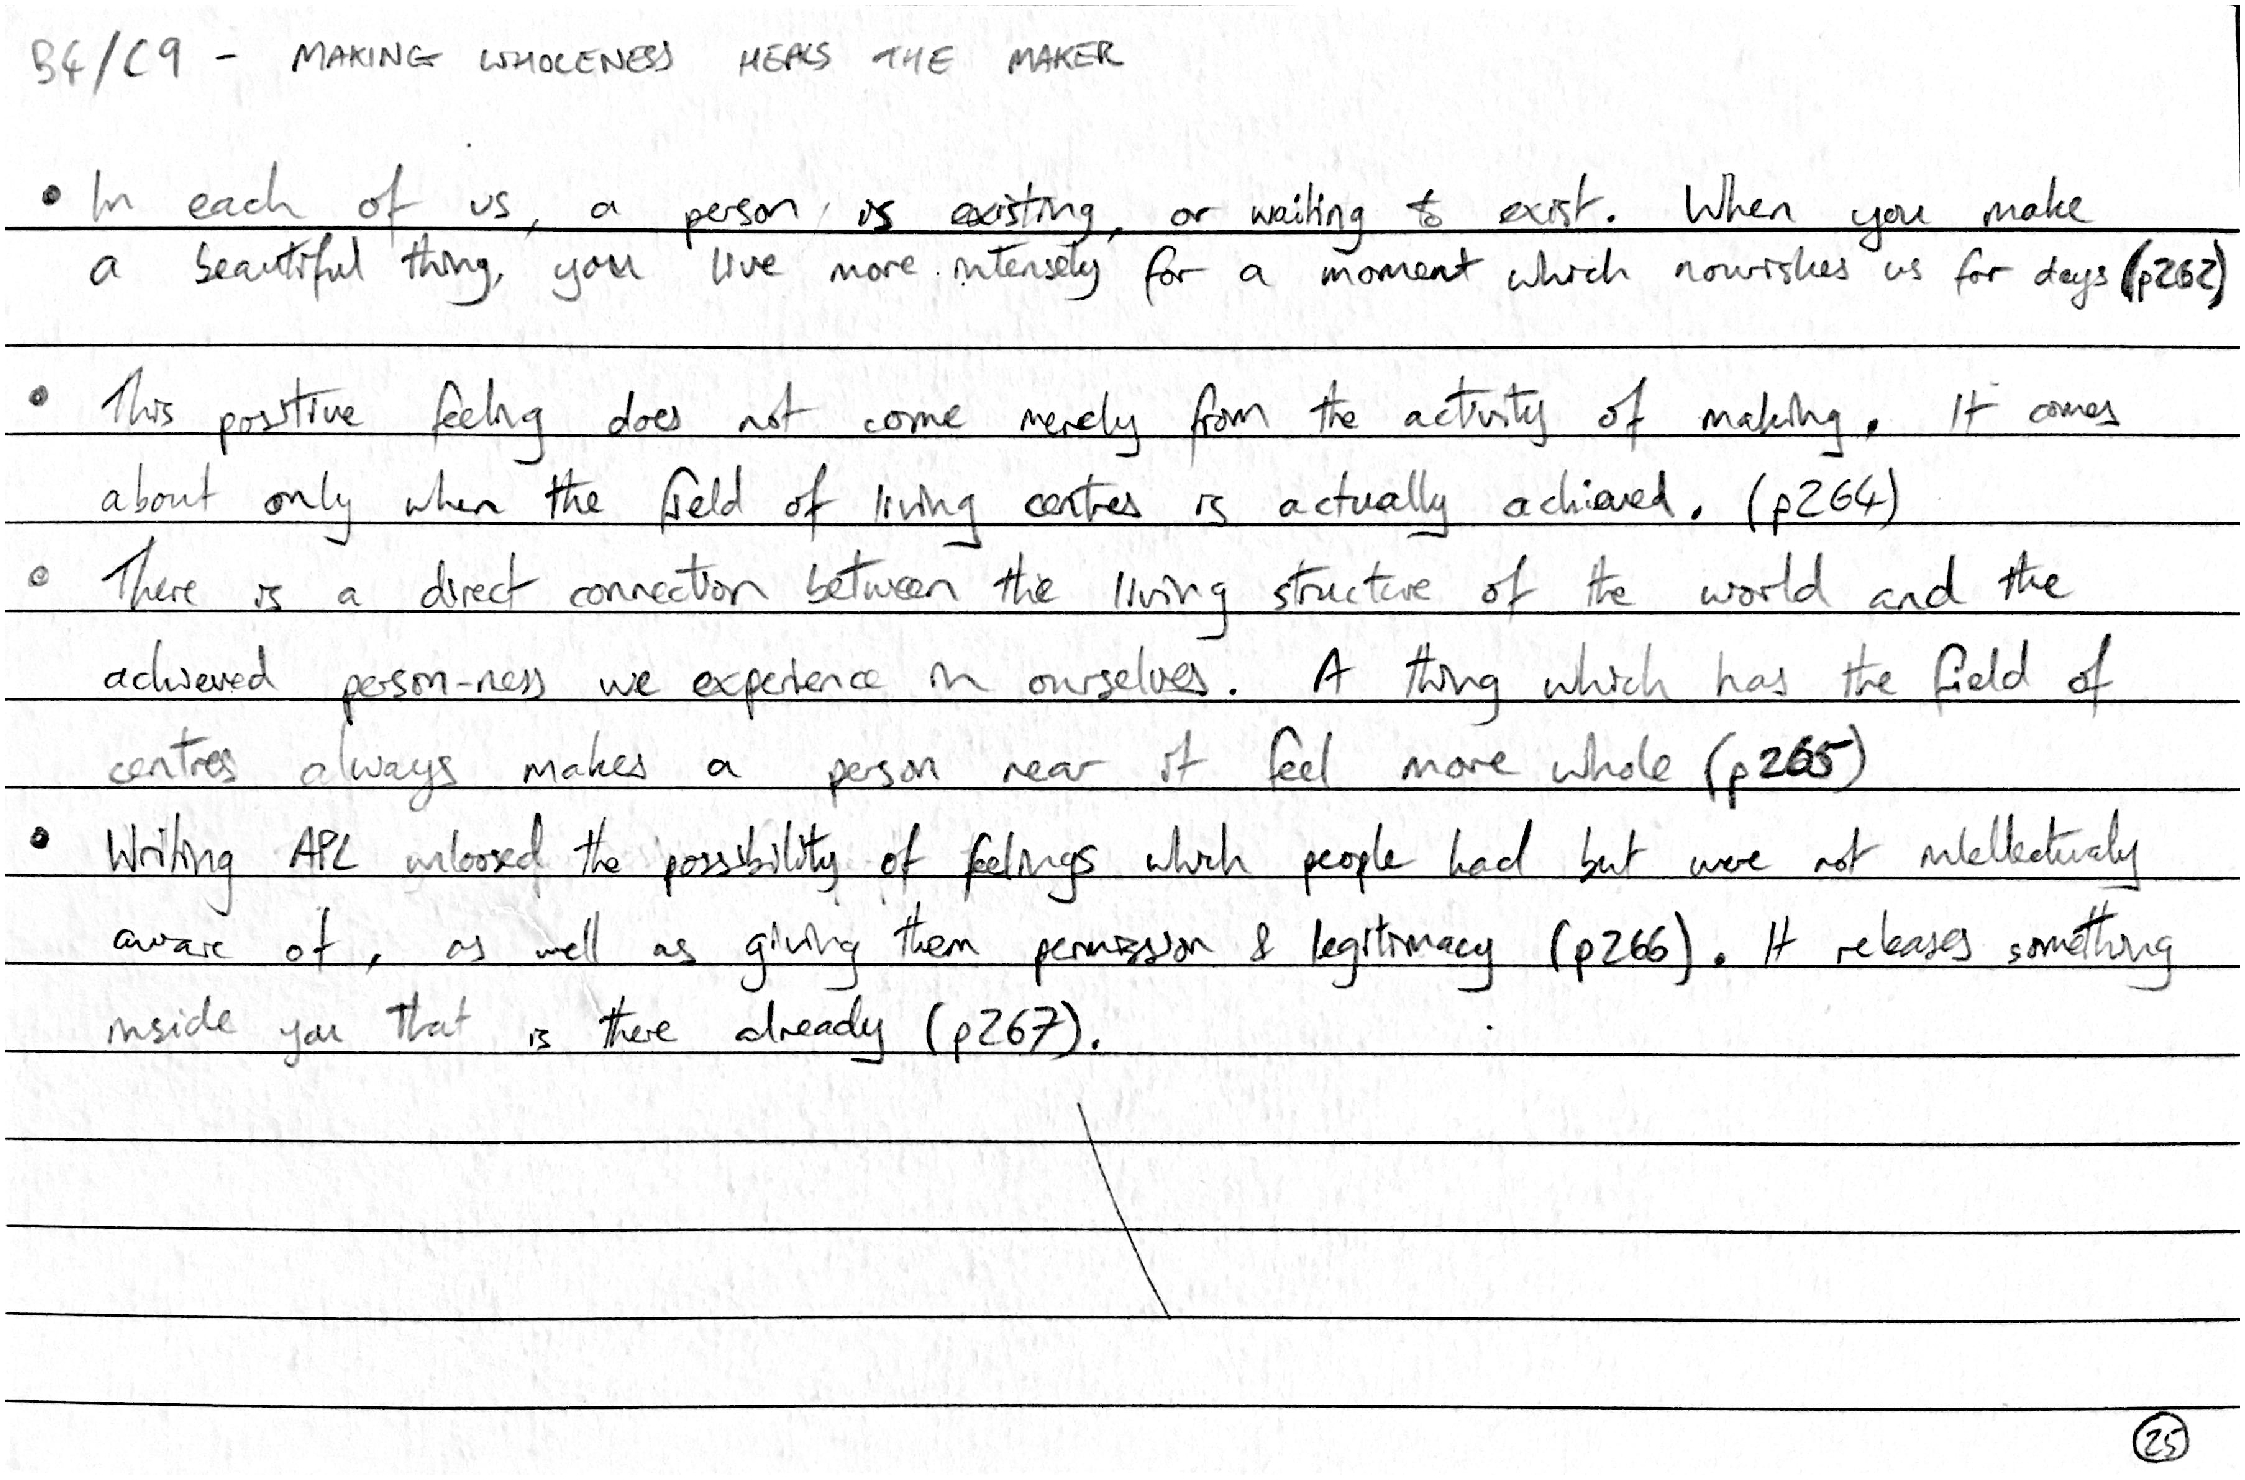 B4/C9 - MAKING WHOLENESS HEALS THE MAKER
• In each of us, a person, is existing, or waiting to exist. When you make
a beautiful thing, you live more intensely for a moment which nourishes us for days (p262)
• This positive feeling does not come merely from the activity of making. It comes
about only when the field of living centres is actually achieved. (p264)
• There is a direct connection between the living structure of the world and the
achieved person-ness we experience in ourselves. A thing which has the field of
centres always makes a person near it feel more whole (p265)
• Writing APL unloosed the possibility of feelings which people had but were not intellectualy
aware of, as well as giving them permission & legitimacy (p266). It releases something
inside you that is there already (p267).
25